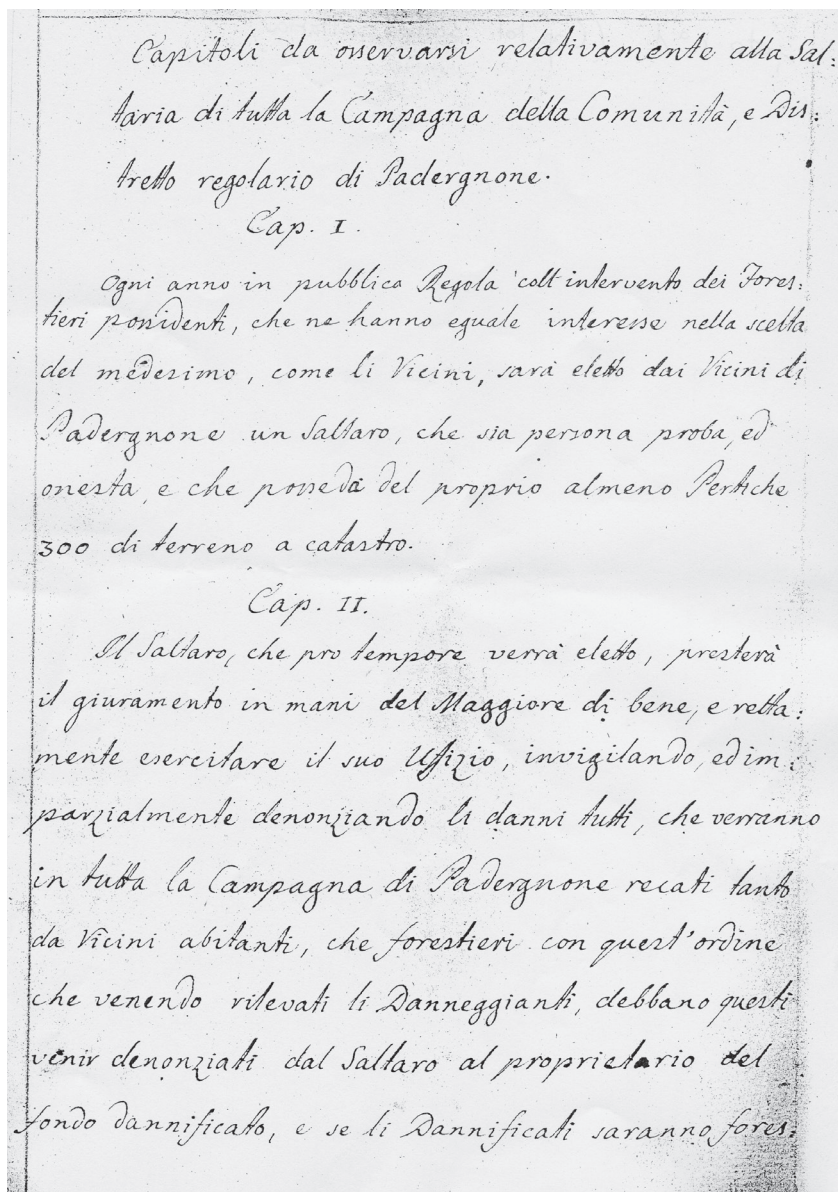 Capitoli da osservarsi relativamente alla Sal:
taria di tutta la Campagna della Comunità, e Dis:
tretto regolario di Padergnone.
Cap. I.
Ogni anno in pubblica Regola coll'intervento dei Fores:
tieri possidenti, che ne hanno eguale interesse nella scelta
del medesimo, come li Vicini, sarà eletto dai Vicini di
Padergnone un Saltaro, che sia persona proba, ed
onesta, e che posseda del proprio almeno Pertiche
300 di terreno a catastro.
Cap. II.
Il Saltaro, che pro tempore verrà eletto, presterà
il giuramento in mani del Maggiore di bene, e retta:
mente esercitare il suo Uffizio, invigilando, ed im:
parzialmente denonziando li danni tutti, che verranno
in tutta la Campagna di Padergnone recati tanto
da Vicini abitanti, che forestieri con quest'ordine
che venendo rilevati li Danneggianti, debbano questi
venir denonziati dal Saltaro al proprietario del
fondo dannificato, e se li Dannificati saranno fores: